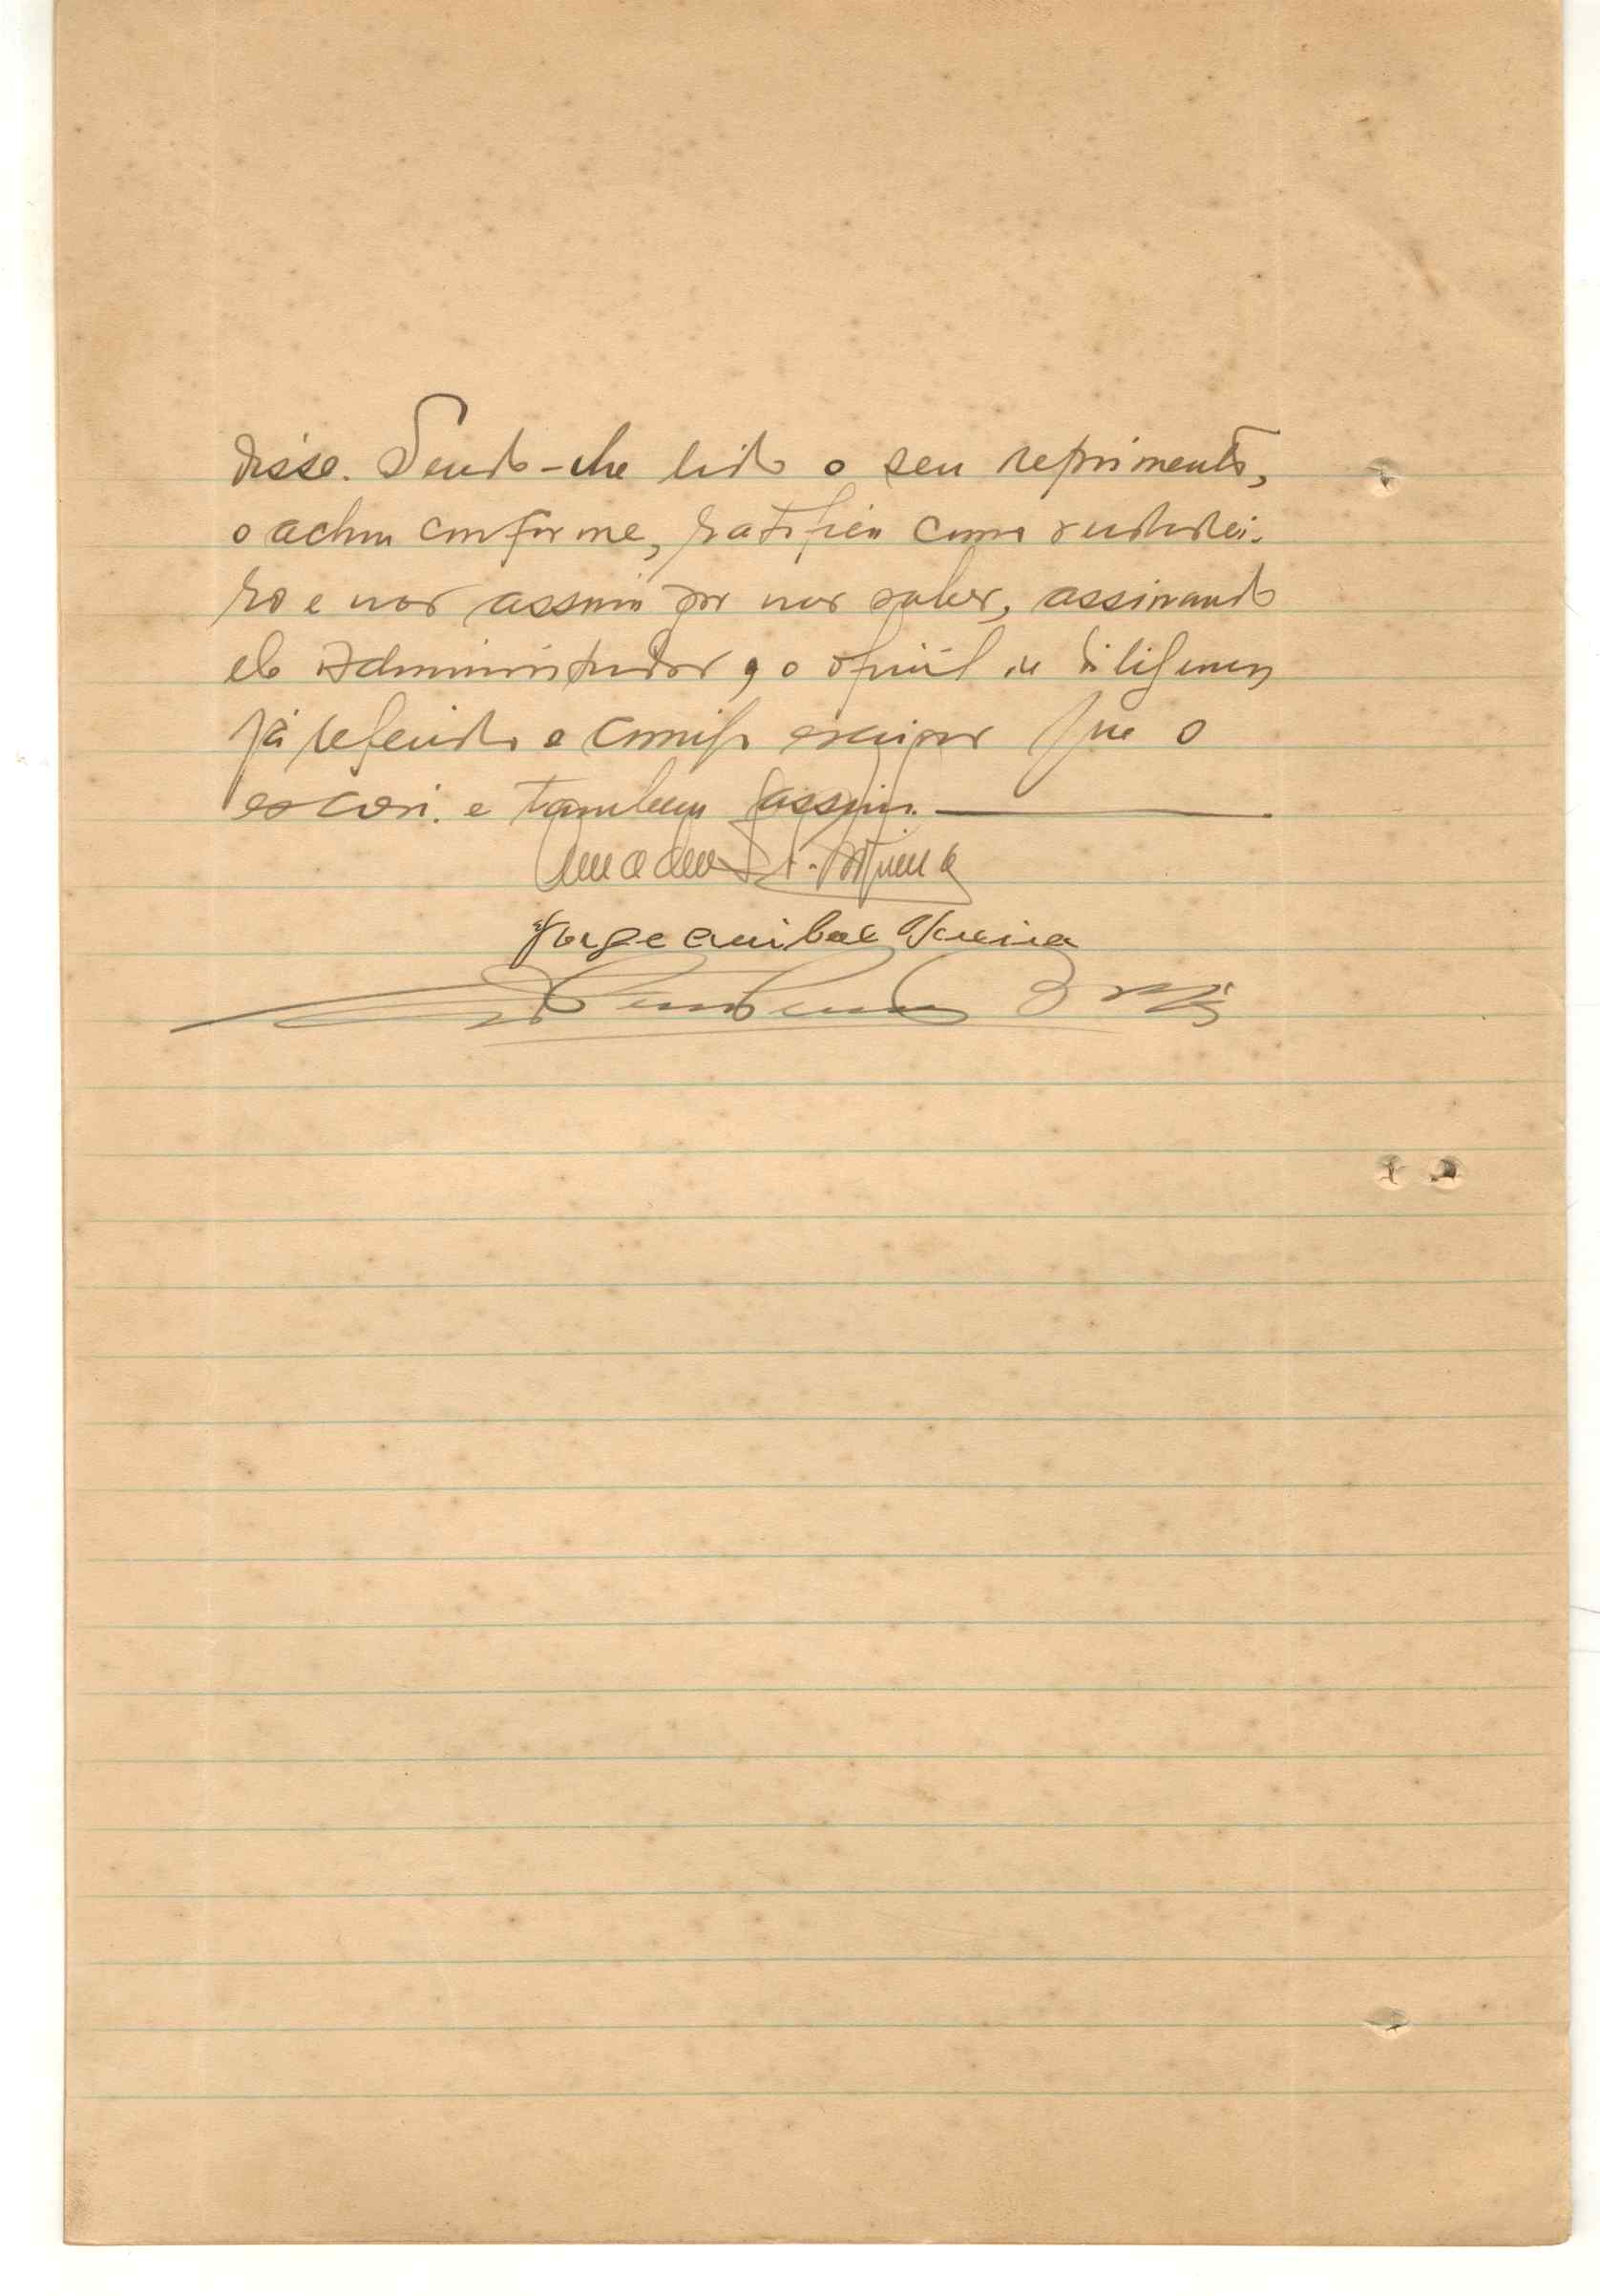 disse. Sendo-lhe lido o seu depoimento,
o achou conforme, ratificou como verdadei-
ro e não assina por não saber, assinando
ele Administrador, o oficial de diligencias
já referido e comigo escrivão que o
escrevi e tambem assino.
Amadeu
Jorge Anibal Vieira